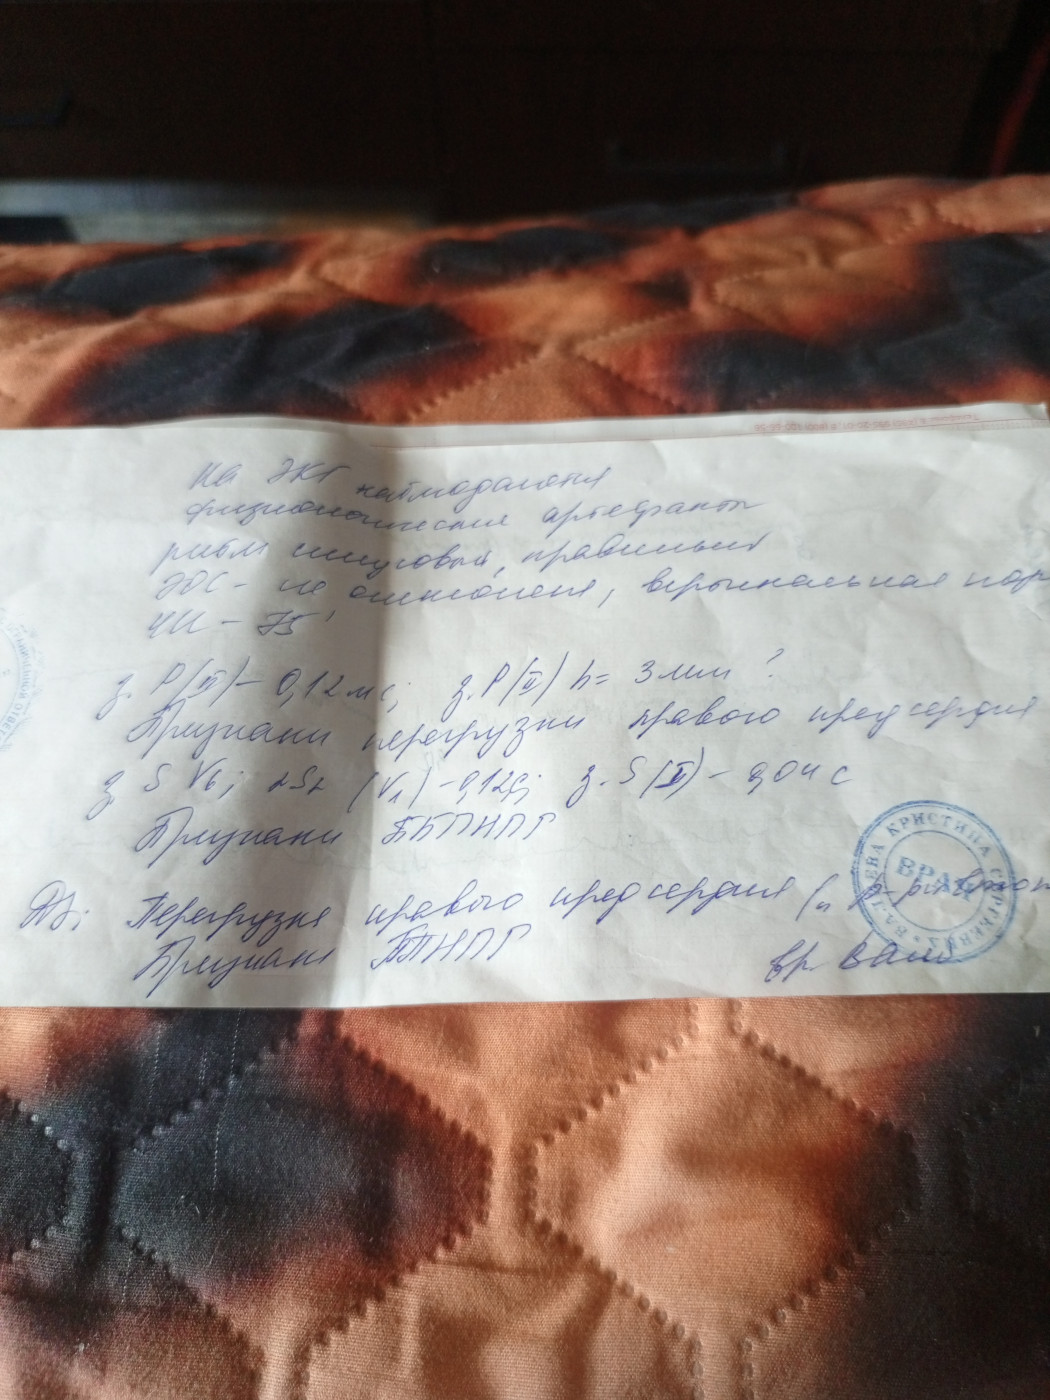 На ЭКГ наблюдаются
физиологические артефакты
ритм синусовый, правильный
ЭОС - не отклонена, вертикальная
ЧСС - 75'
з. P(II) - 0,12 мс; з. P(II) h = 3 мм ?
Признаки перегрузки правого предсердия
з S V6; (V1) - 0,12с; з. S(II) - 0,04 с
Признаки ББПНПГ
Перегрузка правого предсердия
Признаки БПНПГ
вр.
ВРАЧ
КРИСТИНА СЕРГЕЕВНА